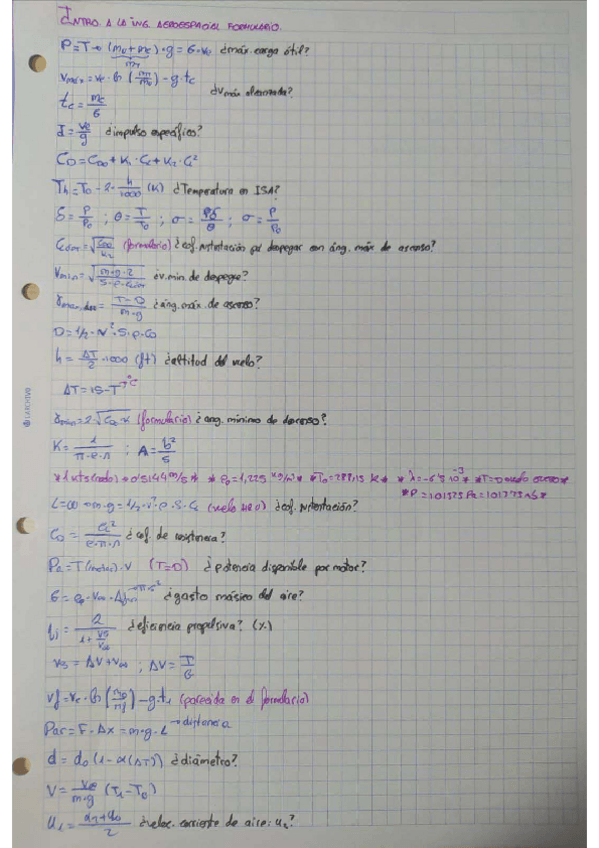 INTRO. A LA ING. AEROESPACIAL FORMULARIO.
P=T→(mu+mc)·g = G·ve ¿máx. carga útil?
mT
vmáx = ve·ln(mT/mu) - g·tc
¿vmáx alcanzada?
tc = mc/G
I = ve/g ¿impulso específico?
CD = CD0 + K1·CL + K2·CL²
Th = T0 - 2·h/1000 (K) ¿Temperatura en ISA?
δ = P/P0 ; θ = T/T0 ; σ = δ/θ ; σ = ρ/ρ0
(formulario) ¿cof. sustentación pa despegar con áng. máx de ascenso?
vmin = √(m·g·2/S·ρ·CL) ¿v. min. de despegue?
γmax. = T-D/m·g ¿áng. máx. de ascenso?
D = 1/2·v²·S·ρ·CD
h = ΔT/2·1000 (ft) ¿altitud del vuelo?
ΔT = 15-T→ºC
γmin = 2·√(CD0·K) (formulario) ¿ang. mínimo de descenso?
K = 1/π·e·A ; A = b²/S
*1 kts (nudo) → 0'5144 m/s* *ρ0 = 1,225 kg/m³* *T0 = 288,15 K* *λ = -6'5·10⁻³*
L=W → m·g = 1/2·v²·ρ·S·CL (vuelo MRU) ¿cof. sustentación?
CD = CL²/e·π·A ¿cof. de resistencia?
Pa = T(motor)·V (T=D) ¿potencia disponible por motor?
G = ρ·v∞·A ¿gasto másico del aire?
ηj = 2/1+vs/v∞ ¿eficiencia propulsiva? (%)
vs = ΔV+v∞ ; ΔV = T/G
vf = ve·ln(m0/mf) - g·t1 (parecida en el formulario)
Par = F·Δx = m·g·L →distancia
d = d0(1-α(ΔT)) ¿diámetro?
¿veloc. corriente de aire: u2?